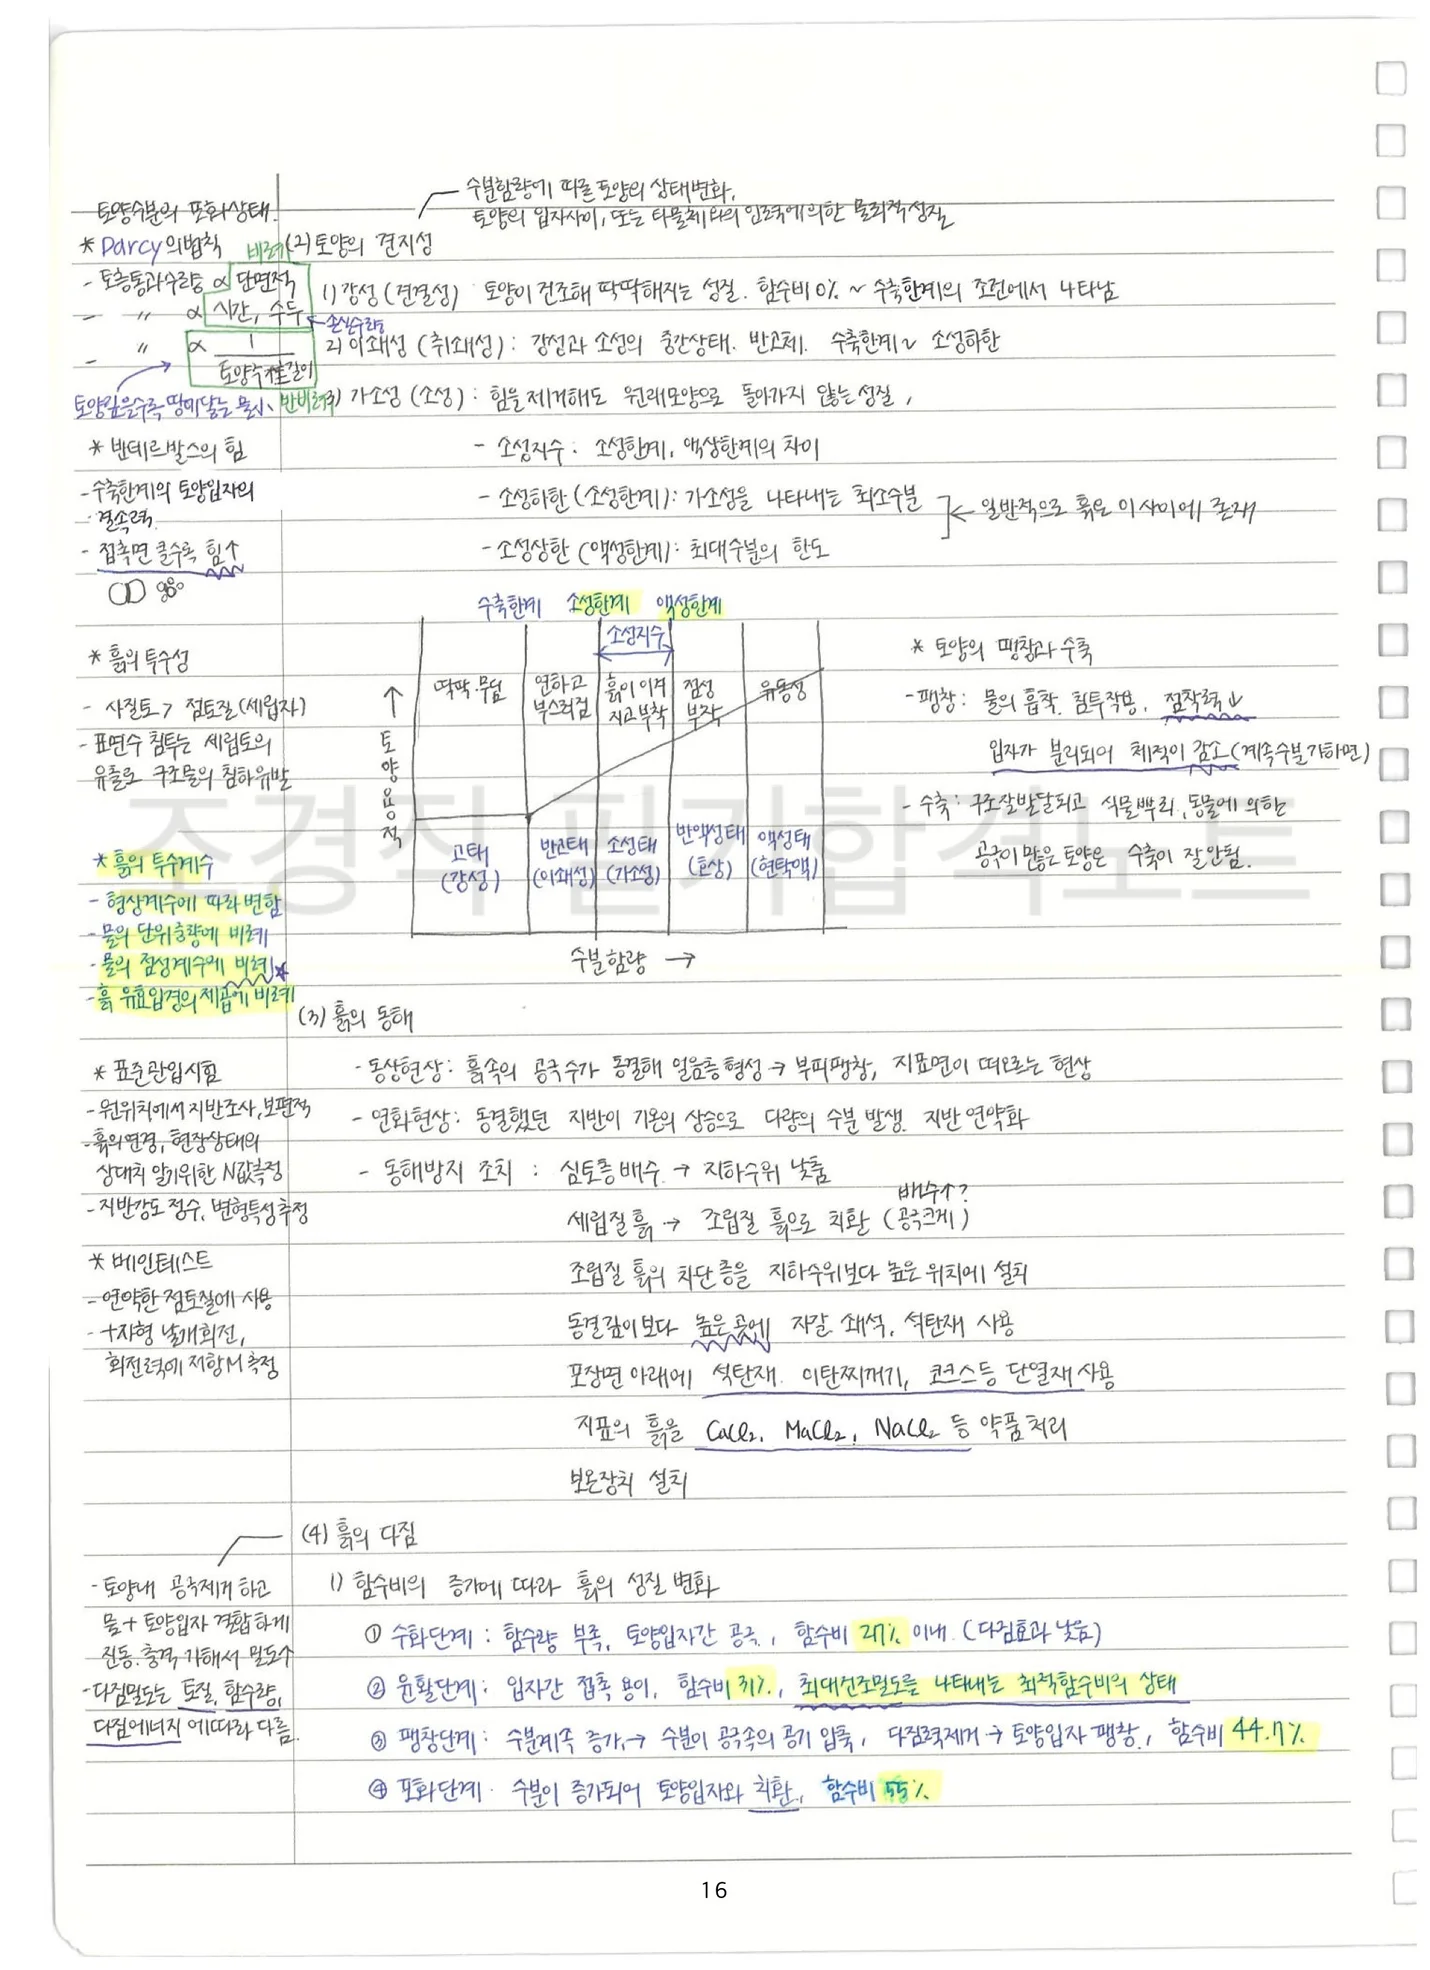 수분함량에 따른 토양의 상태변화,
토양의 입자사이, 또는 타물체와의 인력에 의한 물리적성질
토양수분의 포화상태
* Darcy의 법칙
비례
- 토층통과수량 ∝ 단면적
- 〃 ∝ 시간, 수두
손실수량
- 〃 ∝ 1
토양주柱길이
토양깊을수록 땅에닿는 물↓, 반비례
* 반데르발스의 힘
- 수축한계의 토양입자의
결속력
- 접촉면 클수록 힘↑
* 흙의 투수성
- 사질토 > 점토질(세립자)
- 표면수 침투는 세립토의
유출로 구조물의 침하유발
* 흙의 투수계수
- 형상계수에 따라 변함
- 물의 단위중량에 비례
- 물의 점성계수에 비례★
- 흙 유효입경의 제곱에 비례
* 표준관입시험
- 원위치에서 지반조사, 보편적
- 흙의 연경, 현장상태의
상대치 알기위한 N값측정
- 지반강도 정수, 변형특성추정
* 베인테스트
- 연약한 점토질에 사용
- 十자형 날개회전,
회전력에 저항M 측정
(2) 토양의 견지성
1) 강성 (견결성) 토양이 건조해 딱딱해지는 성질. 함수비 0% ~ 수축한계의 조건에서 나타남
2) 이쇄성 (취쇄성) : 강성과 소성의 중간상태. 반고체. 수축한계 ~ 소성하한
3) 가소성 (소성) : 힘을 제거해도 원래모양으로 돌아가지 않는 성질,
- 소성지수 : 소성한계, 액상한계의 차이
- 소성하한 (소성한계) : 가소성을 나타내는 최소수분
- 소성상한 (액성한계) : 최대수분의 한도
← 일반적으로 흙은 이 사이에 존재
수축한계 소성한계 액성한계
소성지수
딱딱·무덤
연하고
부스러짐
흙이 이겨
지고 부착
점성
부착
유동성
↑
토양용적
고태
(강성)
반고태
(이쇄성)
소성태
(가소성)
반액성태
(효상)
액성태
(현탁액)
수분함량 →
* 토양의 팽창과 수축
- 팽창 : 물의 흡착, 침투작용, 점착력↓
입자가 분리되어 체적이 감소 (계속수분가하면)
- 수축 : 구조잘발달되고 식물뿌리, 동물에 의한
공극이 많은 토양은 수축이 잘안됨.
조경직 필기합격노트
(3) 흙의 동해
- 동상현상 : 흙속의 공극수가 동결해 얼음층형성 → 부피팽창, 지표면이 떠오르는 현상
- 연화현상 : 동결했던 지반이 기온의 상승으로 다량의 수분 발생. 지반 연약화
- 동해방지 조치 : 심토층 배수 → 지하수위 낮춤
배수↑?
세립질 흙 → 조립질 흙으로 치환 (공극크게)
조립질 흙의 차단층을 지하수위보다 높은 위치에 설치
동결깊이보다 높은 곳에 자갈, 쇄석, 석탄재 사용
포장면 아래에 석탄재, 이탄찌꺼기, 코크스등 단열재 사용
지표의 흙을 CaCl₂, MaCl₂, NaCl₂ 등 약품처리
보온장치 설치
(4) 흙의 다짐
- 토양내 공극제거 하고
물+토양입자 결합하게
진동·충격 가해서 밀도↑
- 다짐밀도는 토질, 함수량,
다짐에너지 에따라 다름.
1) 함수비의 증가에 따라 흙의 성질 변화
① 수화단계 : 함수량 부족, 토양입자간 공극, 함수비 27% 이내. (다짐효과 낮음)
② 윤활단계 : 입자간 접촉 용이, 함수비 31%, 최대건조밀도를 나타내는 최적함수비의 상태
③ 팽창단계 : 수분계속 증가, → 수분이 공극속의 공기 압축, 다짐력제거 → 토양입자 팽창, 함수비 44.7%
④ 포화단계 · 수분이 증가되어 토양입자와 치환, 함수비 55%
16